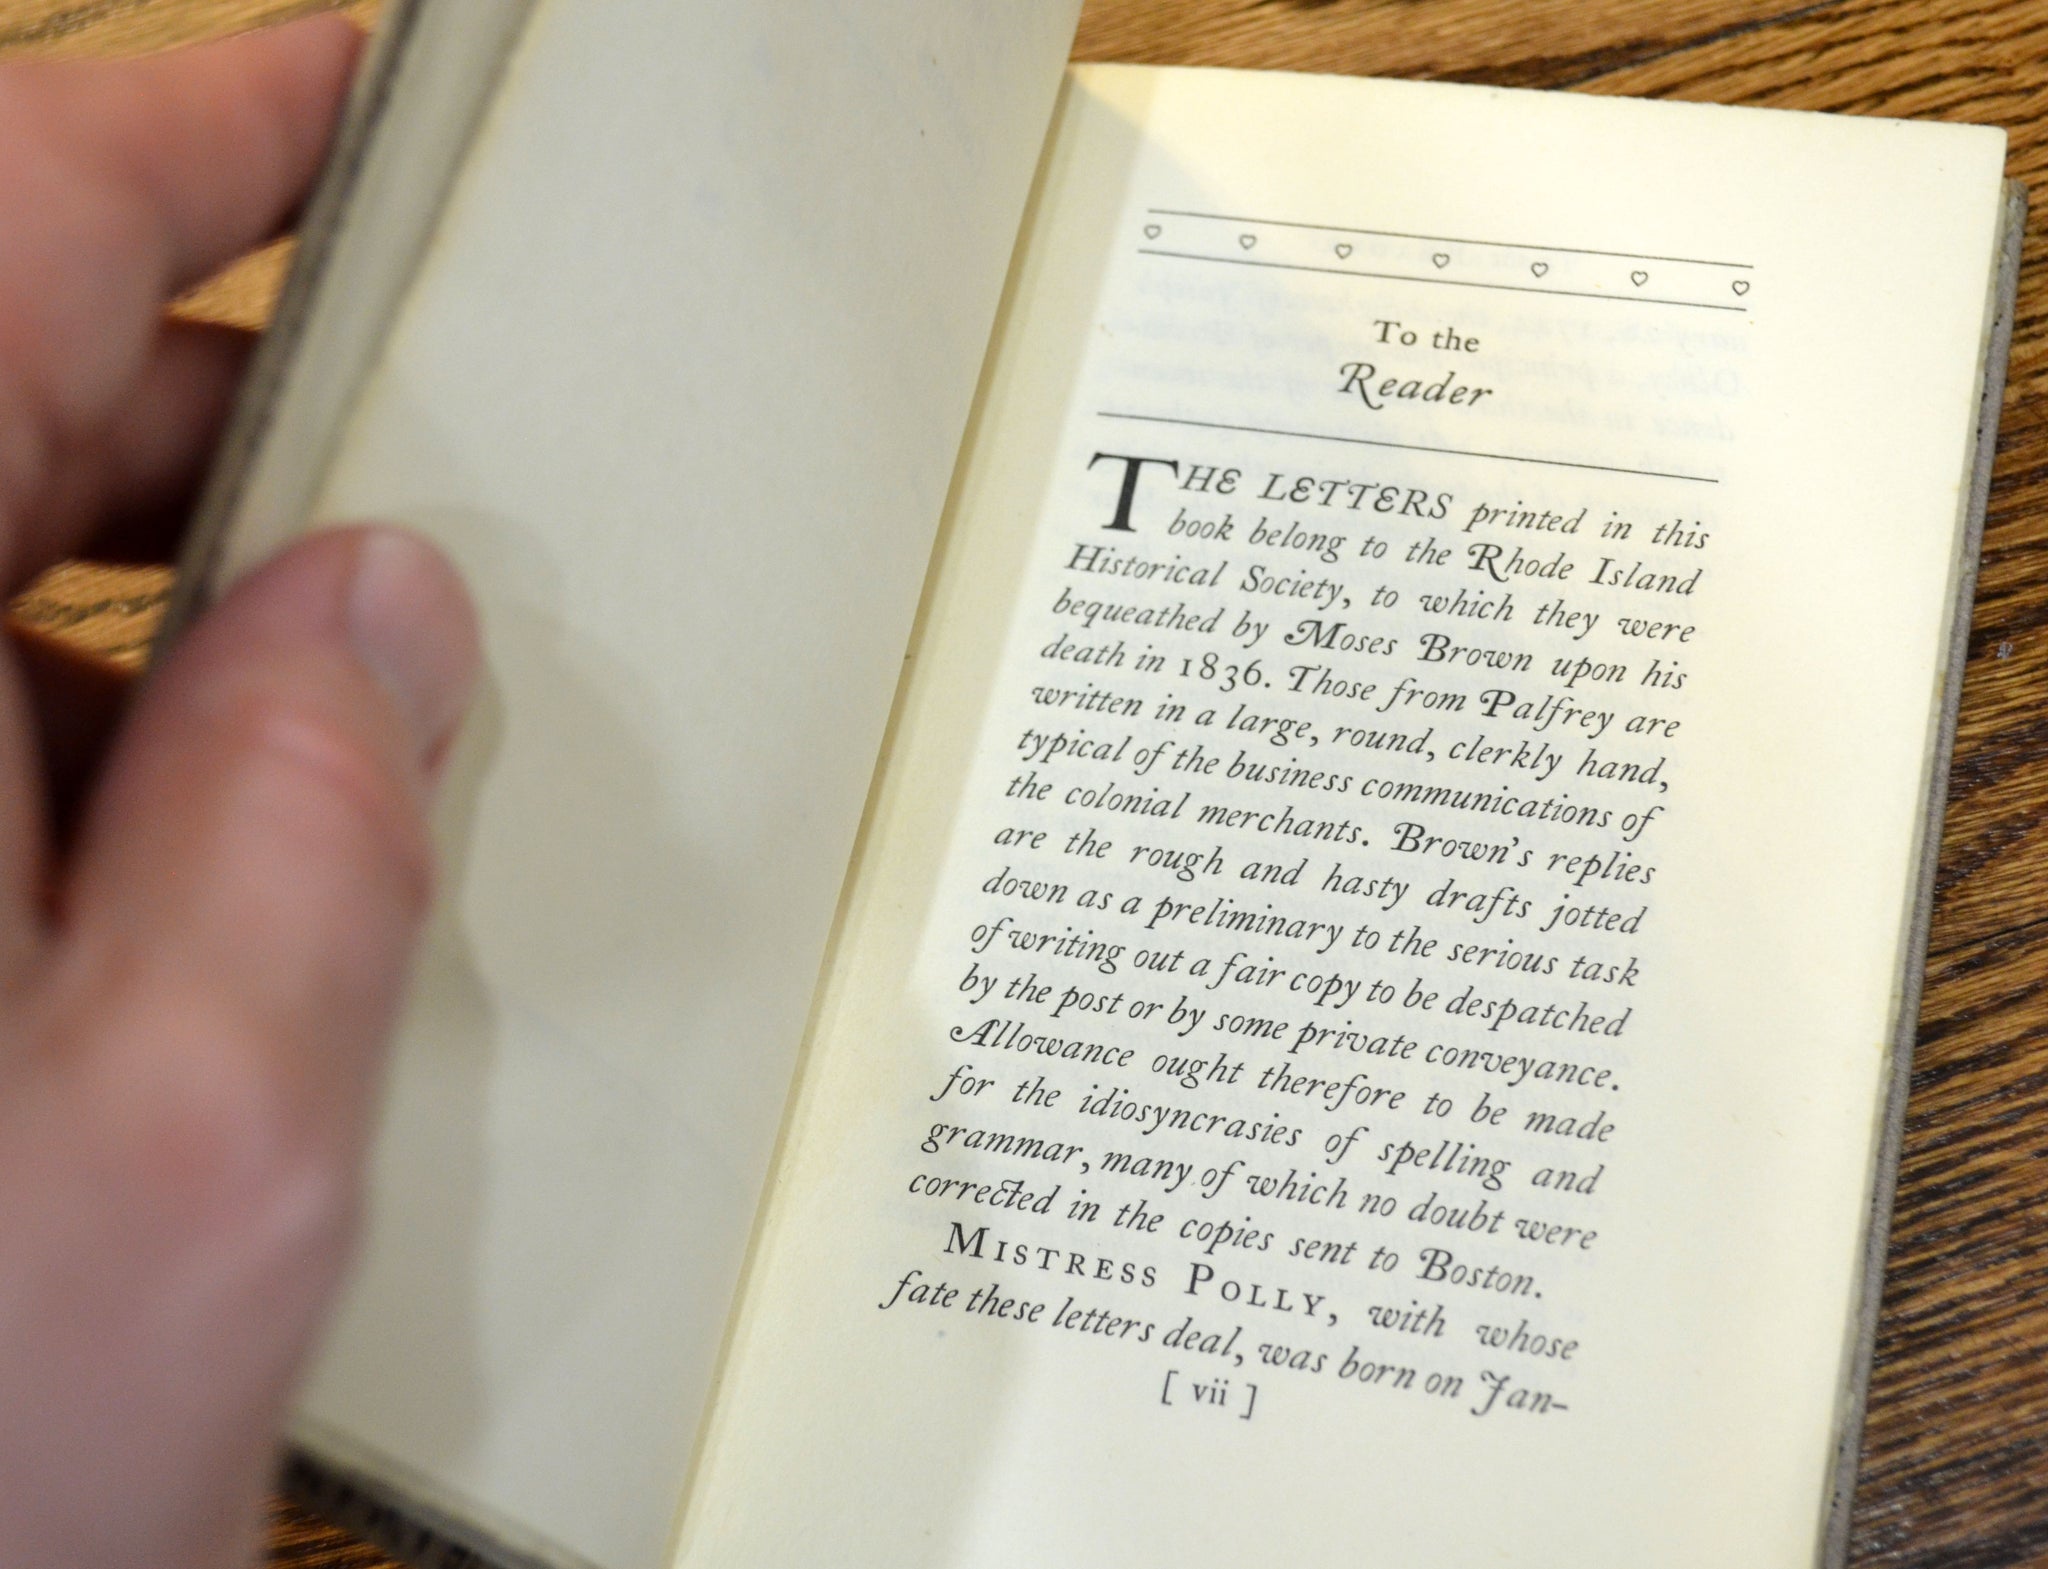 To the
Reader
THE LETTERS printed in this
book belong to the Rhode Island
Historical Society, to which they were
bequeathed by Moses Brown upon his
death in 1836. Those from Palfrey are
written in a large, round, clerkly hand,
typical of the business communications of
the colonial merchants. Brown's replies
are the rough and hasty drafts jotted
down as a preliminary to the serious task
of writing out a fair copy to be despatched
by the post or by some private conveyance.
Allowance ought therefore to be made
for the idiosyncrasies of spelling and
grammar, many of which no doubt were
corrected in the copies sent to Boston.
MISTRESS POLLY, with whose
fate these letters deal, was born on Jan-
[ vii ]